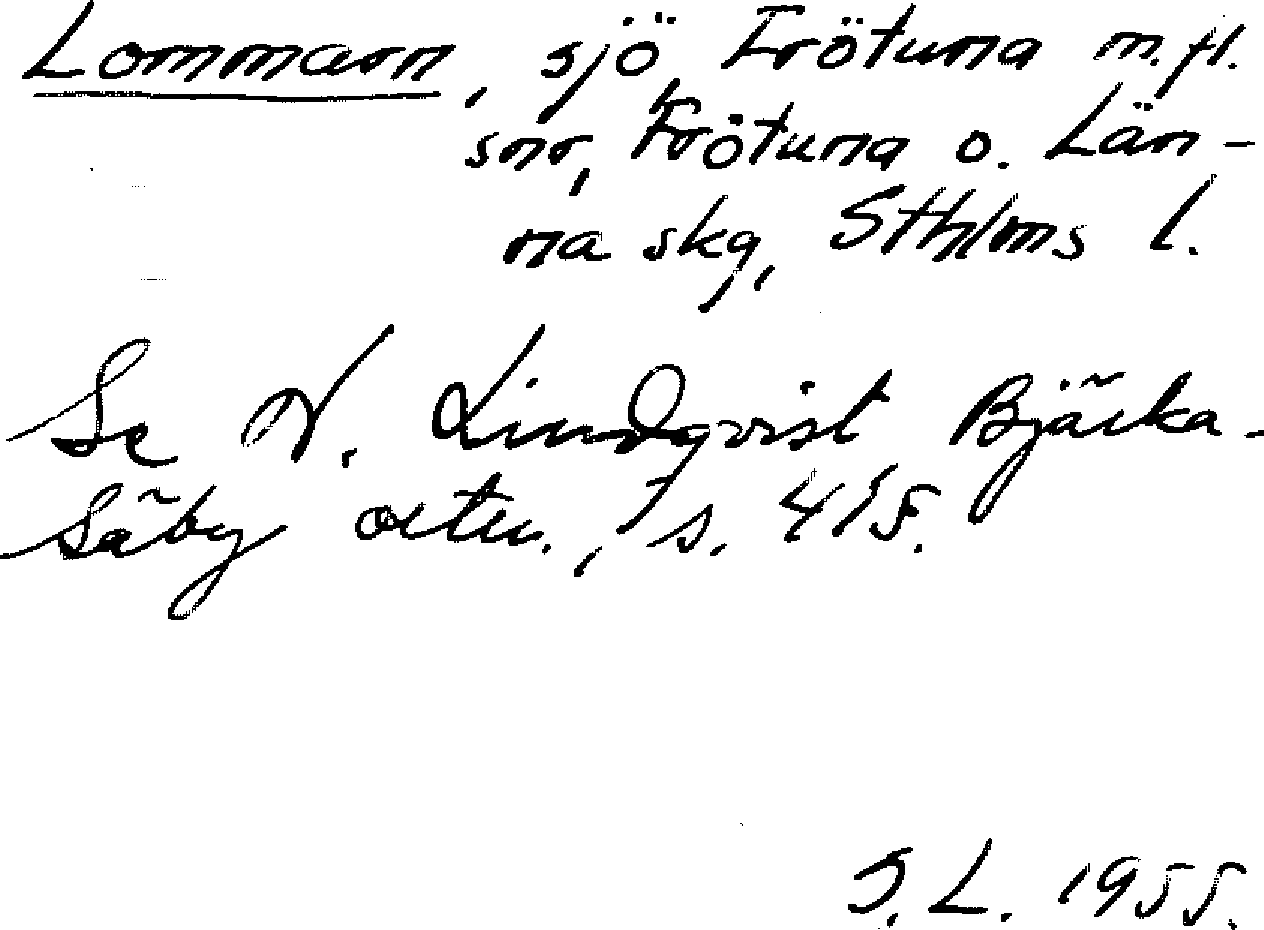 Lommarn, sjö, Frötuna m.fl.
snr, Frötuna o. Län-
na skg, Sthlms l.
Se N. Lindqvist Bjärka-
Säby ortn., s. 415.
S.L. 1955.